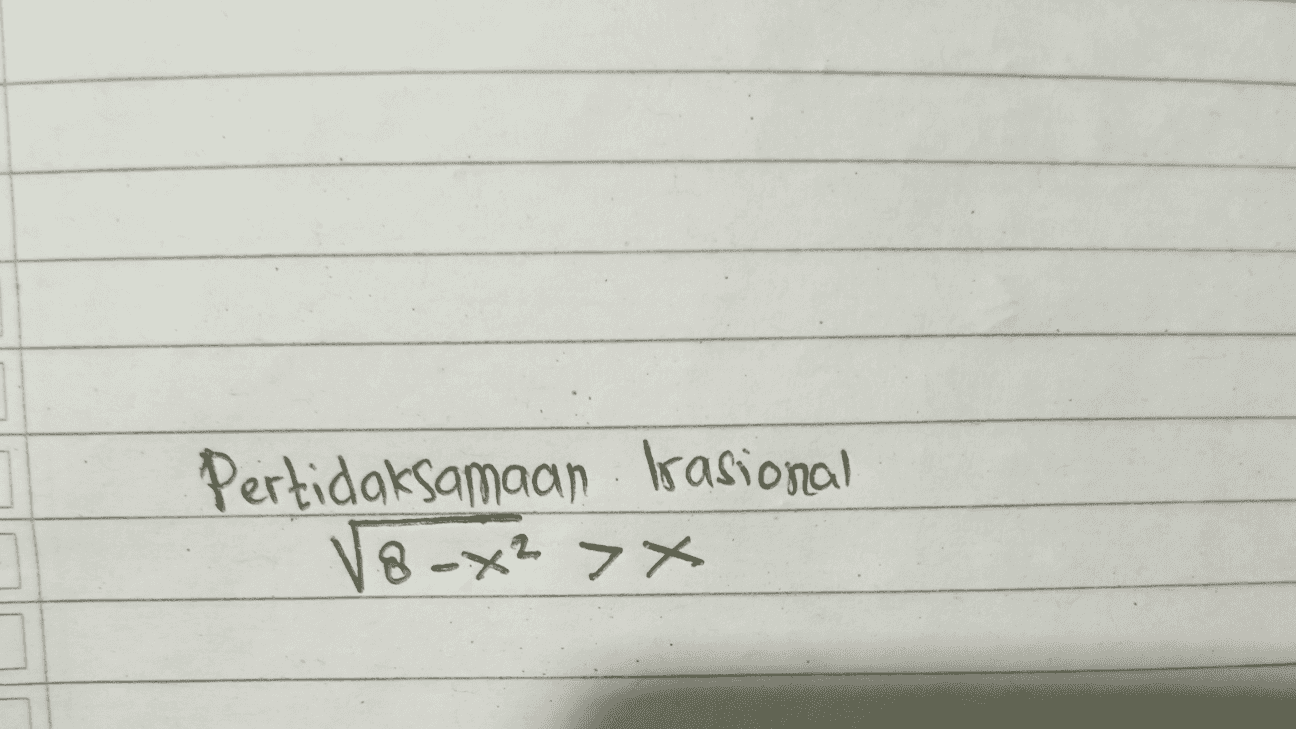 Pertidaksamaan Irasional
√8-x² > x